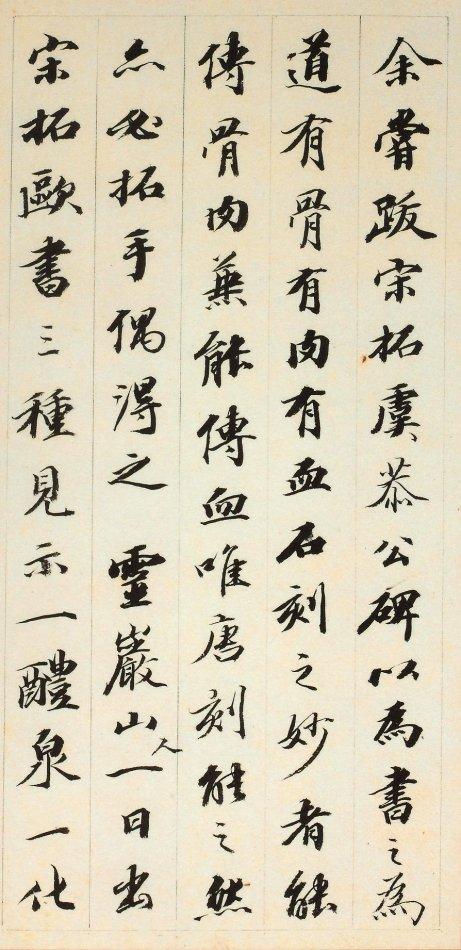 余嘗跋宋拓虞恭公碑以為書之為
道有骨有肉有血石刻之妙者能
傳骨肉兼能傳血唯唐刻能之然
亦必拓手偶得之　靈巖山人一日出
宋拓歐書三種見示一醴泉一化